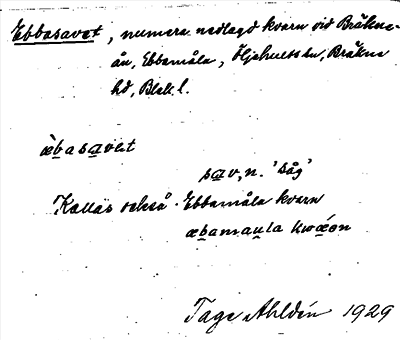 Ebbasavet, numera nedlagd kvarn vid Bräkne-
ån, Ebbamåla, Öljehults sn, Bräkne
hd, Blek. l.
æ̀basavət
sav, n. 'såg'
Kallas också Ebbamåla kvarn
æbamaula kwæ̀on
Tage Ahldén 1929